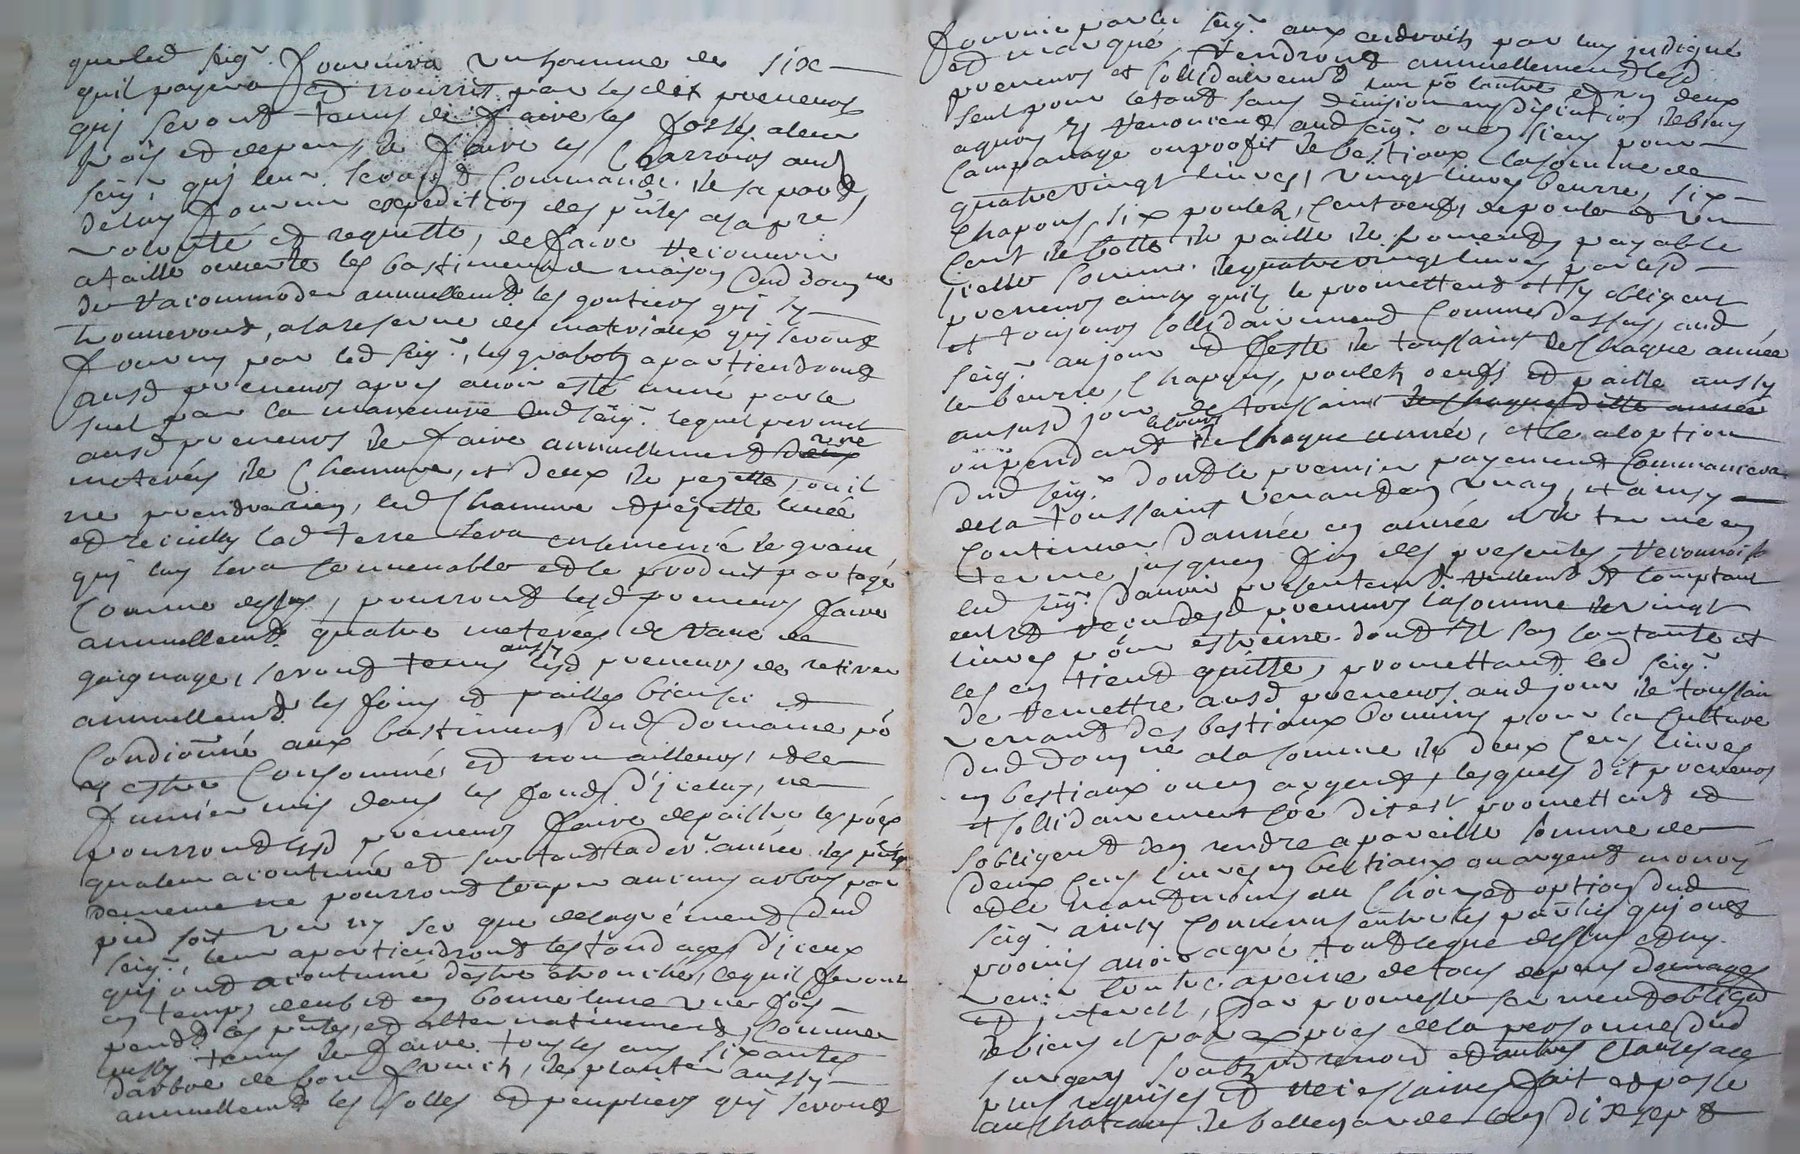 queled seigr. fournira un homme de six
quil payera et nourrit par lesdit preneurs
qui seront tenus de faire les fossés a leur
frais et depens, de faire les charrois aud
seigr. qui leur seront commandé, de sa part
deluy fournir expedition des pntes a sa pre
volonté et requette, de faire recouvrir
ataille ouverte les bastiments et maison dud domne
de racommoder annuellemt. les goutiers qui sy
trouveront, ala reserve des materiaux qui seront
fournis par led seigr., les quabots apartiendront
ausd preneurs apres avoir esté miné par le
suel par la maneuvre dud seigr. lequel permet
ausd preneurs de faire annuellement une
meterés de chanvre, et deux de pezette, ou il
ne prendra rien, led chanvre et pezette levée
et recuilly lad terre sera ensemencé de grain
qui luy sera convenable et le produit partagé
comme dessus, pourront lesd preneurs faire
annuellemt. quatre meterées de rave de
gaignage, seront tenus aussy lesd preneurs de retirer
annuellemt. les foins et pailles bien sec et
condionné aux bastiments dud domaine po
y estre consommés et non ailleurs, et le
fumier mis dans les fonds d'iceluy, ne
pourront lesd preneurs faire de pailler les prés
qualeur acoutumé et surtout lad derr. année des pntes
de meme ne pourront couper aucuns arbres par
pied soit vert ny sec que de lagrément dud
seigr., leur apartiendront les tondages d'iceux
qui ont acoutume destre ebranché, ce quil feront
en temps deub et en bonne lune une fois
pendt. les pntes, et alternativement, comme
aussy tenus de faire tous les ans six antes
darbre de bon fruich, de planter aussy
annuellemt. les solles et peupliers qui seront
fournie par led seigr. aux endroits par luy indiqué
et marqué, rendront annuellement lesd
preneurs et sollidairement lun po lautre et un deux
seul pour letout sans division ny disiution de biens
aquoy ils renoncent aud seigr. ou es siens pour
campanage ou proffit de bestiaux la somme de
quatrevingt livres, vingt livres beurre, six
chapons, six poulets, cent oeufs, de poule et un
cent de botte de paille de froment, payable
icelle somme de quatrevingt livres par lesd
preneurs ainsy quils le promettent et sy obligent
et toujours sollidairement comme dessus, aud
seigr. au jour et feste de toussaint de chaque année
le beurre, chapons, poulets oeufs et paille aussy
aususd jour de toussaint de chaque ditte année
ou pendant le cours de chaque année, et le aloption
dud seigr. dont le premier payement commancera
de la toussaint venant en un an, et ainsy
continuer d'année en année et de terme en
terme jusques fin des presentes, reconnoist
led seigr. d'avoir presentemt. reellemt. et comptant
eut et receu desd preneurs la somme de vingt
livres pour estreine dont il san contante et
les en tient quitte, promettant led seigr.
de remettre ausd preneurs aud jour de toussain
venant des bestiaux bouvins pour la culture
dud domne ala somme de deux cens livres
en bestiaux ou en argent, lesquels dit preneurs
et sollidairement coe dit est promettent et
sobligent den rendre a pareille somme de
deux cens livres en bestiaux ou argent monoyé
et le neantmoins au choix et option dud
seigr. ainsy convenus entre les parties qui ont
promis avoir agré tout le que dessus et ny
venir contre apeine de tous depens domages
et interets, par promesse serment obligaon
de biens et par expres de la personne dud
surgens soubz renond et autres clauses a ce
plus requises et necessaires fait et passé
au chateau de bellegarde le dix sept